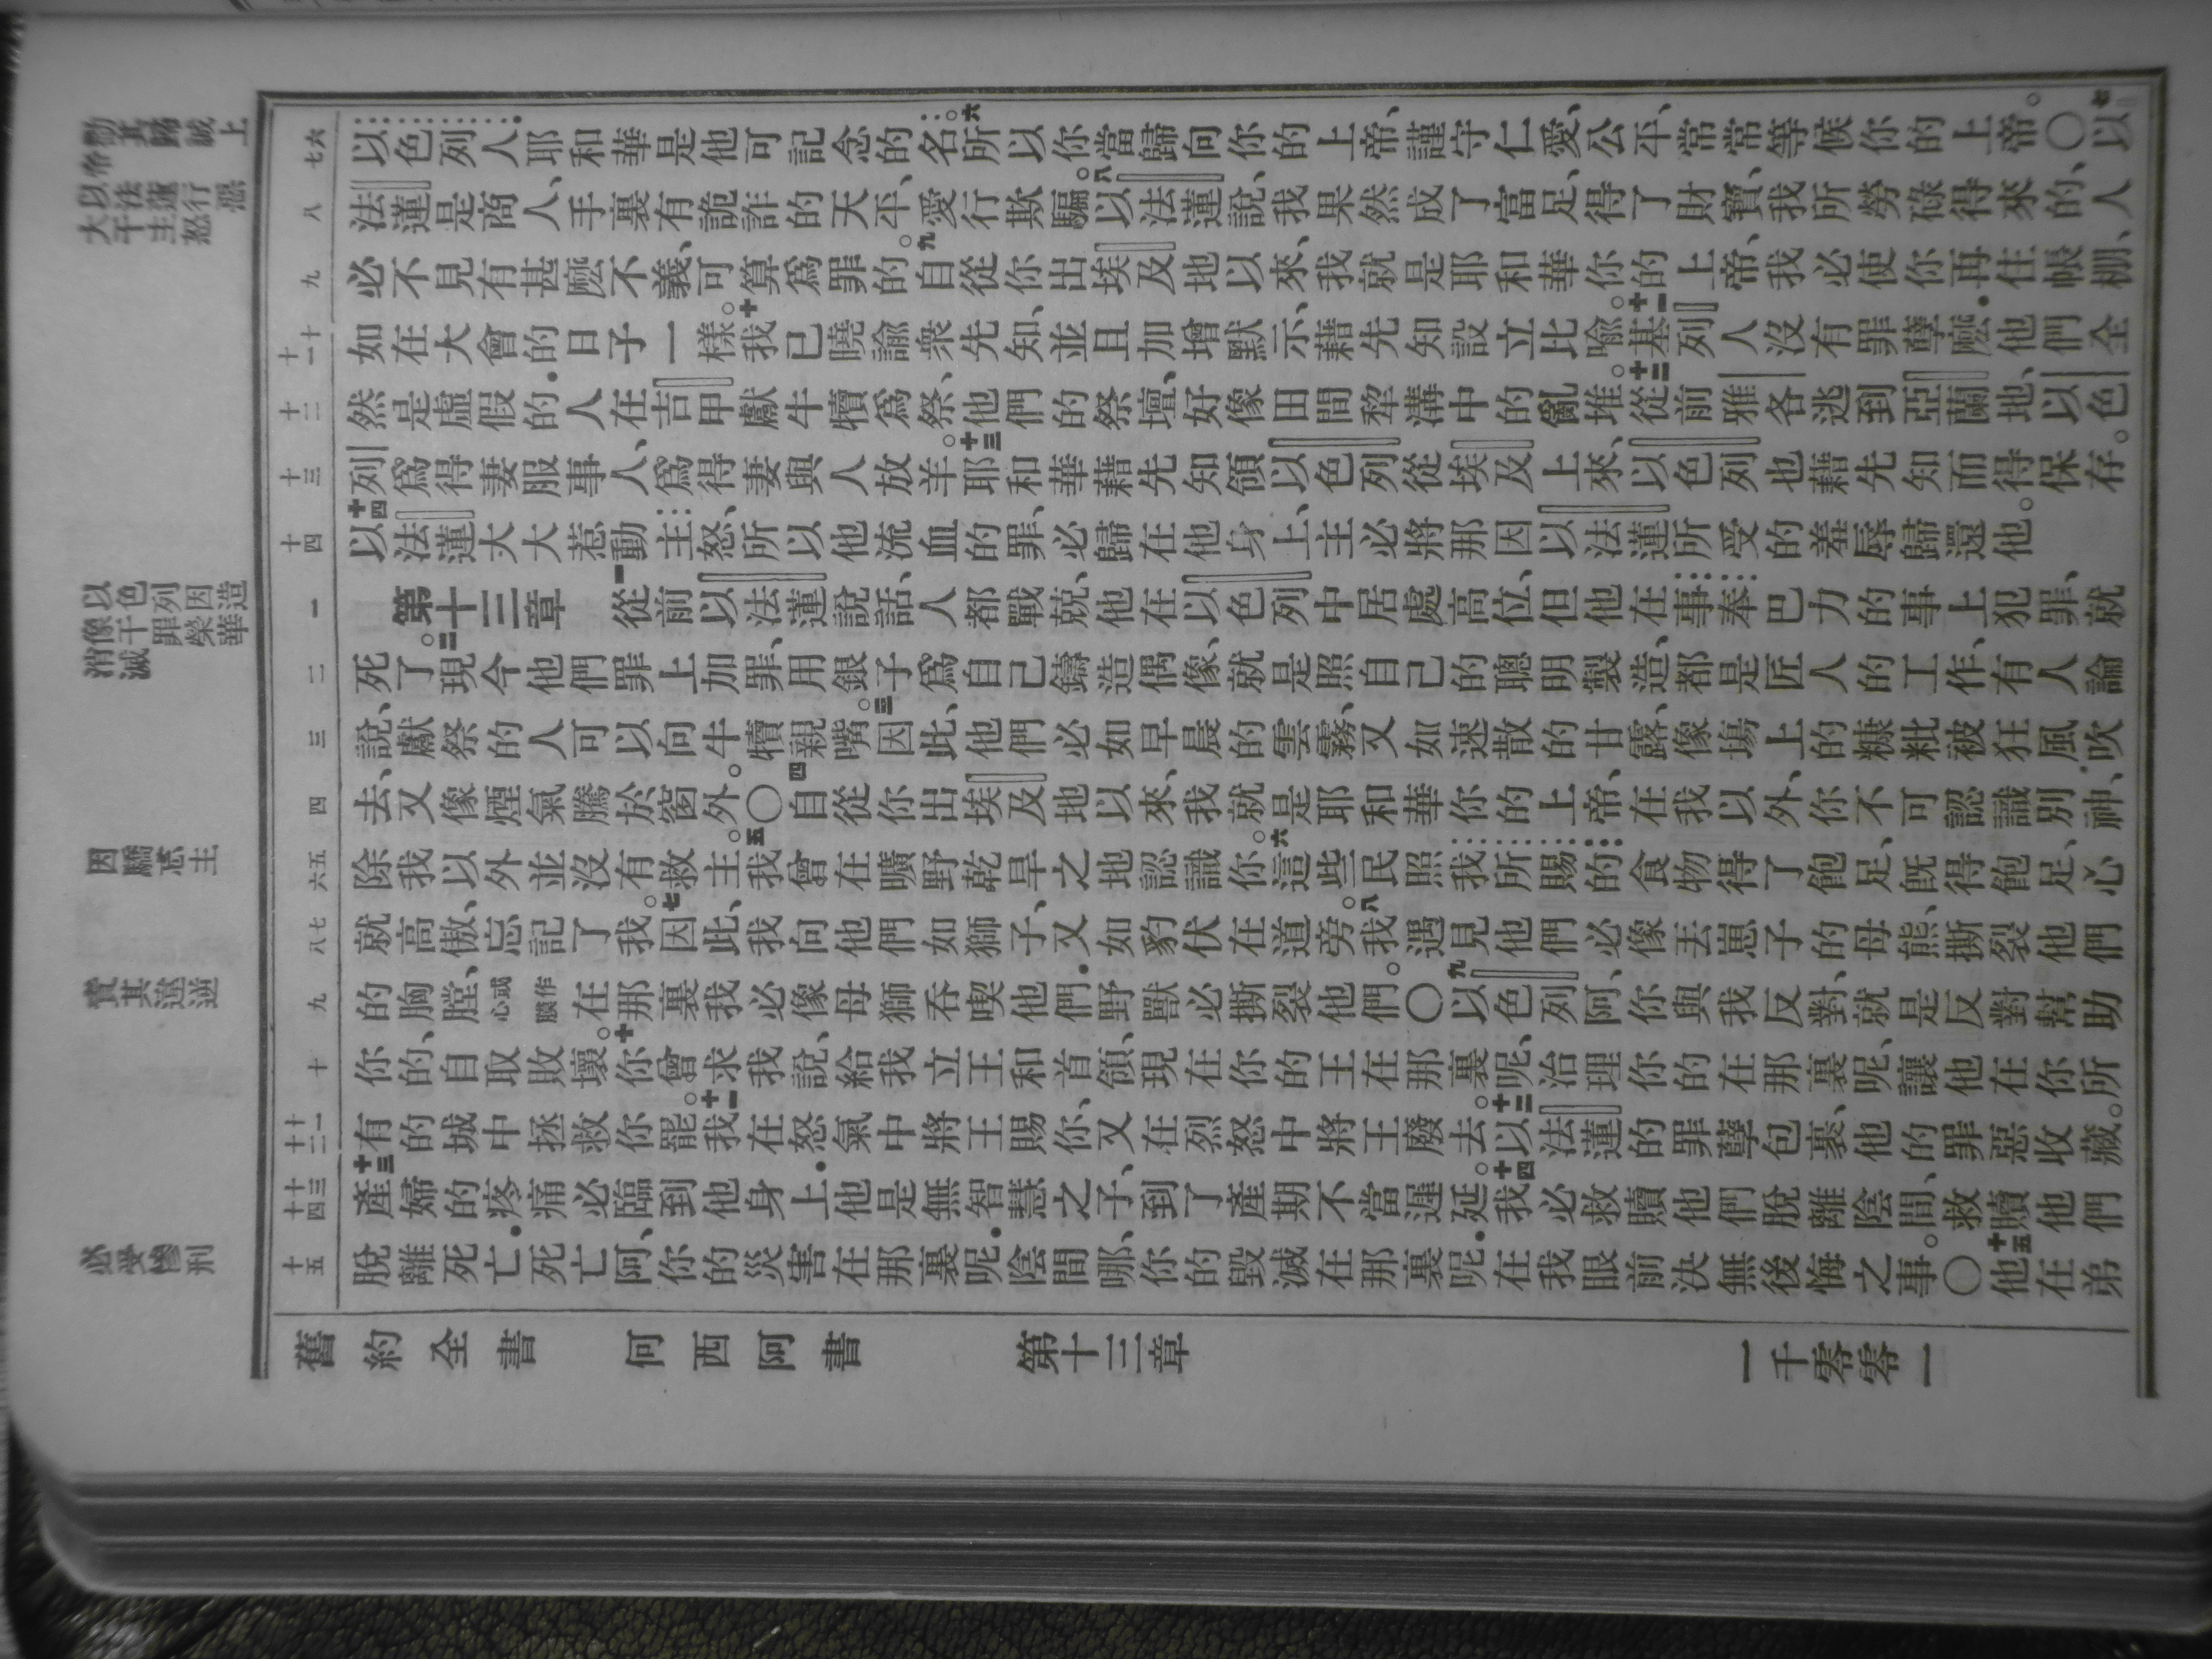 勸其歸誠上帝
以法蓮行惡大干主怒
以色列因造像干罪榮華消滅
因驕忘主
責其違逆
必受慘刑
七六
八
九
十一十
十二
十三
十四
一
二
三
四
六五
八七
九
十
十二十一
十四十三
十五
以色列人.耶和華是他可記念的名。六所以你當歸向你的上帝、謹守仁愛、公平、常常等候你的上帝。〇七以
法蓮是商人、手裏有詭詐的天平、愛行欺騙。八以法蓮說、我果然成了富足、得了財寶、我所勞碌得來的、人
必不見有甚麽不義、可算爲罪的。九自從你出埃及地以來、我就是耶和華你的上帝、我必使你再住帳棚、
如在大會的日子一樣。十我已曉諭衆先知、並且加增默示、藉先知設立比喻。十一基列人沒有罪孽麽.他們全
然是虛假的.人在吉甲獻牛犢爲祭、他們的祭壇、好像田間犂溝中的亂堆。十二從前雅各逃到亞蘭地、以色
列爲得妻服事人、爲得妻與人放羊。十三耶和華藉先知領以色列從埃及上來、以色列也藉先知而得保存。
十四以法蓮大大惹動主怒、所以他流血的罪、必歸在他身上、主必將那因以法蓮所受的羞辱歸還他。
第十三章 一從前以法蓮說話、人都戰兢、他在以色列中居處高位、但他在事奉巴力的事上犯罪、就
死了。二現今他們罪上加罪、用銀子爲自己鑄造偶像、就是照自己的聰明製造、都是匠人的工作、有人論
說、獻祭的人可以向牛犢親嘴。三因此、他們必如早晨的雲霧、又如速散的甘露、像塲上的糠粃被狂風吹
去、又像煙氣騰於窗外。〇四自從你出埃及地以來、我就是耶和華你的上帝、在我以外、你不可認識別神、
除我以外並沒有救主。五我曾在曠野乾旱之地認識你。六這些民照我所賜的食物得了飽足、旣得飽足、心
就高傲、忘記了我。七因此、我向他們如獅子、又如豹伏在道旁。八我遇見他們必像丟崽子的母熊、撕裂他們
的胸膛、或作心膜在那裏我必像母獅吞喫他們.野獸必撕裂他們。〇九以色列阿、你與我反對、就是反對幫助
你的、自取敗壞。十你曾求我說、給我立王和首領、現在你的王在那裏呢、治理你的在那裏呢、讓他在你所
有的城中拯救你罷。十一我在怒氣中將王賜你、又在烈怒中將王廢去。十二以法蓮的罪孽包裹、他的罪惡收藏。
十三產婦的疼痛必臨到他身上.他是無智慧之子、到了產期不當遲延。十四我必救贖他們脫離陰間、救贖他們
脫離死亡.死亡阿、你的災害在那裏呢.陰間哪、你的毀滅在那裏呢.在我眼前決無後悔之事。〇十五他在弟
舊約全書 何西阿書 第十三章 一千零零一